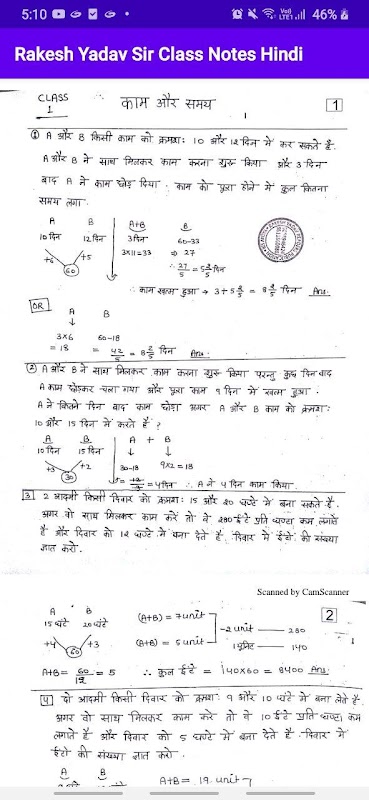 5:10 46%
Rakesh Yadav Sir Class Notes Hindi
CLASS 1 काम और समय 1
① A और B किसी काम को क्रमशः 10 और 12 दिन में कर सकते है.
A और B ने साथ मिलकर काम करना शुरू किया और 3 दिन
बाद A ने काम छोड़ दिया. काम को पूरा होने में कुल कितना
समय लगा.
A B A+B B
10 दिन 12 दिन 3 दिन 60-33
+6 +5 3x11=33 ⇒ 27
60 ∴ 27/5 = 5 2/5 दिन
∴ काम खत्म हुआ → 3+5 2/5 = 8 2/5 दिन Ans.
OR A B
3x6 60-18
= 18 = 42/5 = 8 2/5 दिन Ans.
② A और B ने साथ मिलकर काम करना शुरू किया परन्तु कुछ दिन बाद
A काम छोड़कर चला गया और पूरा काम 9 दिन में खत्म हुआ.
A ने कितने दिन बाद काम छोड़ा अगर A और B काम को क्रमशः
10 और 15 दिन में करते है?
A B A + B
10 दिन 15 दिन
+3 +2 30-18 9x2=18
30 = 4 दिन ∴ A ने 4 दिन काम किया.
3 2 आदमी किसी दिवार को क्रमशः 15 और 20 घण्टे में बना सकते है.
अगर वो साथ मिलकर काम करें तो वे 280 ईंटे प्रति घण्टा कम लगाते
है और दिवार को 12 घण्टे में बना देते है. दिवार में ईंटो की संख्या
ज्ञात करो.
Scanned by CamScanner
2
A B
15 घंटे 20 घंटे (A+B) = 7 unit
+4 +3 -2 unit — 280
60 (A+B) = 5 unit 1 यूनिट — 140
A+B= 60/12 = 5 ∴ कुल ईंटे = 140x60 = 8400 Ans.
4 दो आदमी किसी दिवार को क्रमशः 9 और 10 घंटे में बना लेते है.
अगर वो साथ मिलकर काम करे तो वे 10 ईंटे प्रति घण्टा कम
लगाते है और दिवार को 5 घण्टे में बना देते है. दिवार में
ईंटो की संख्या ज्ञात करो.
A B A+B = 19 unit